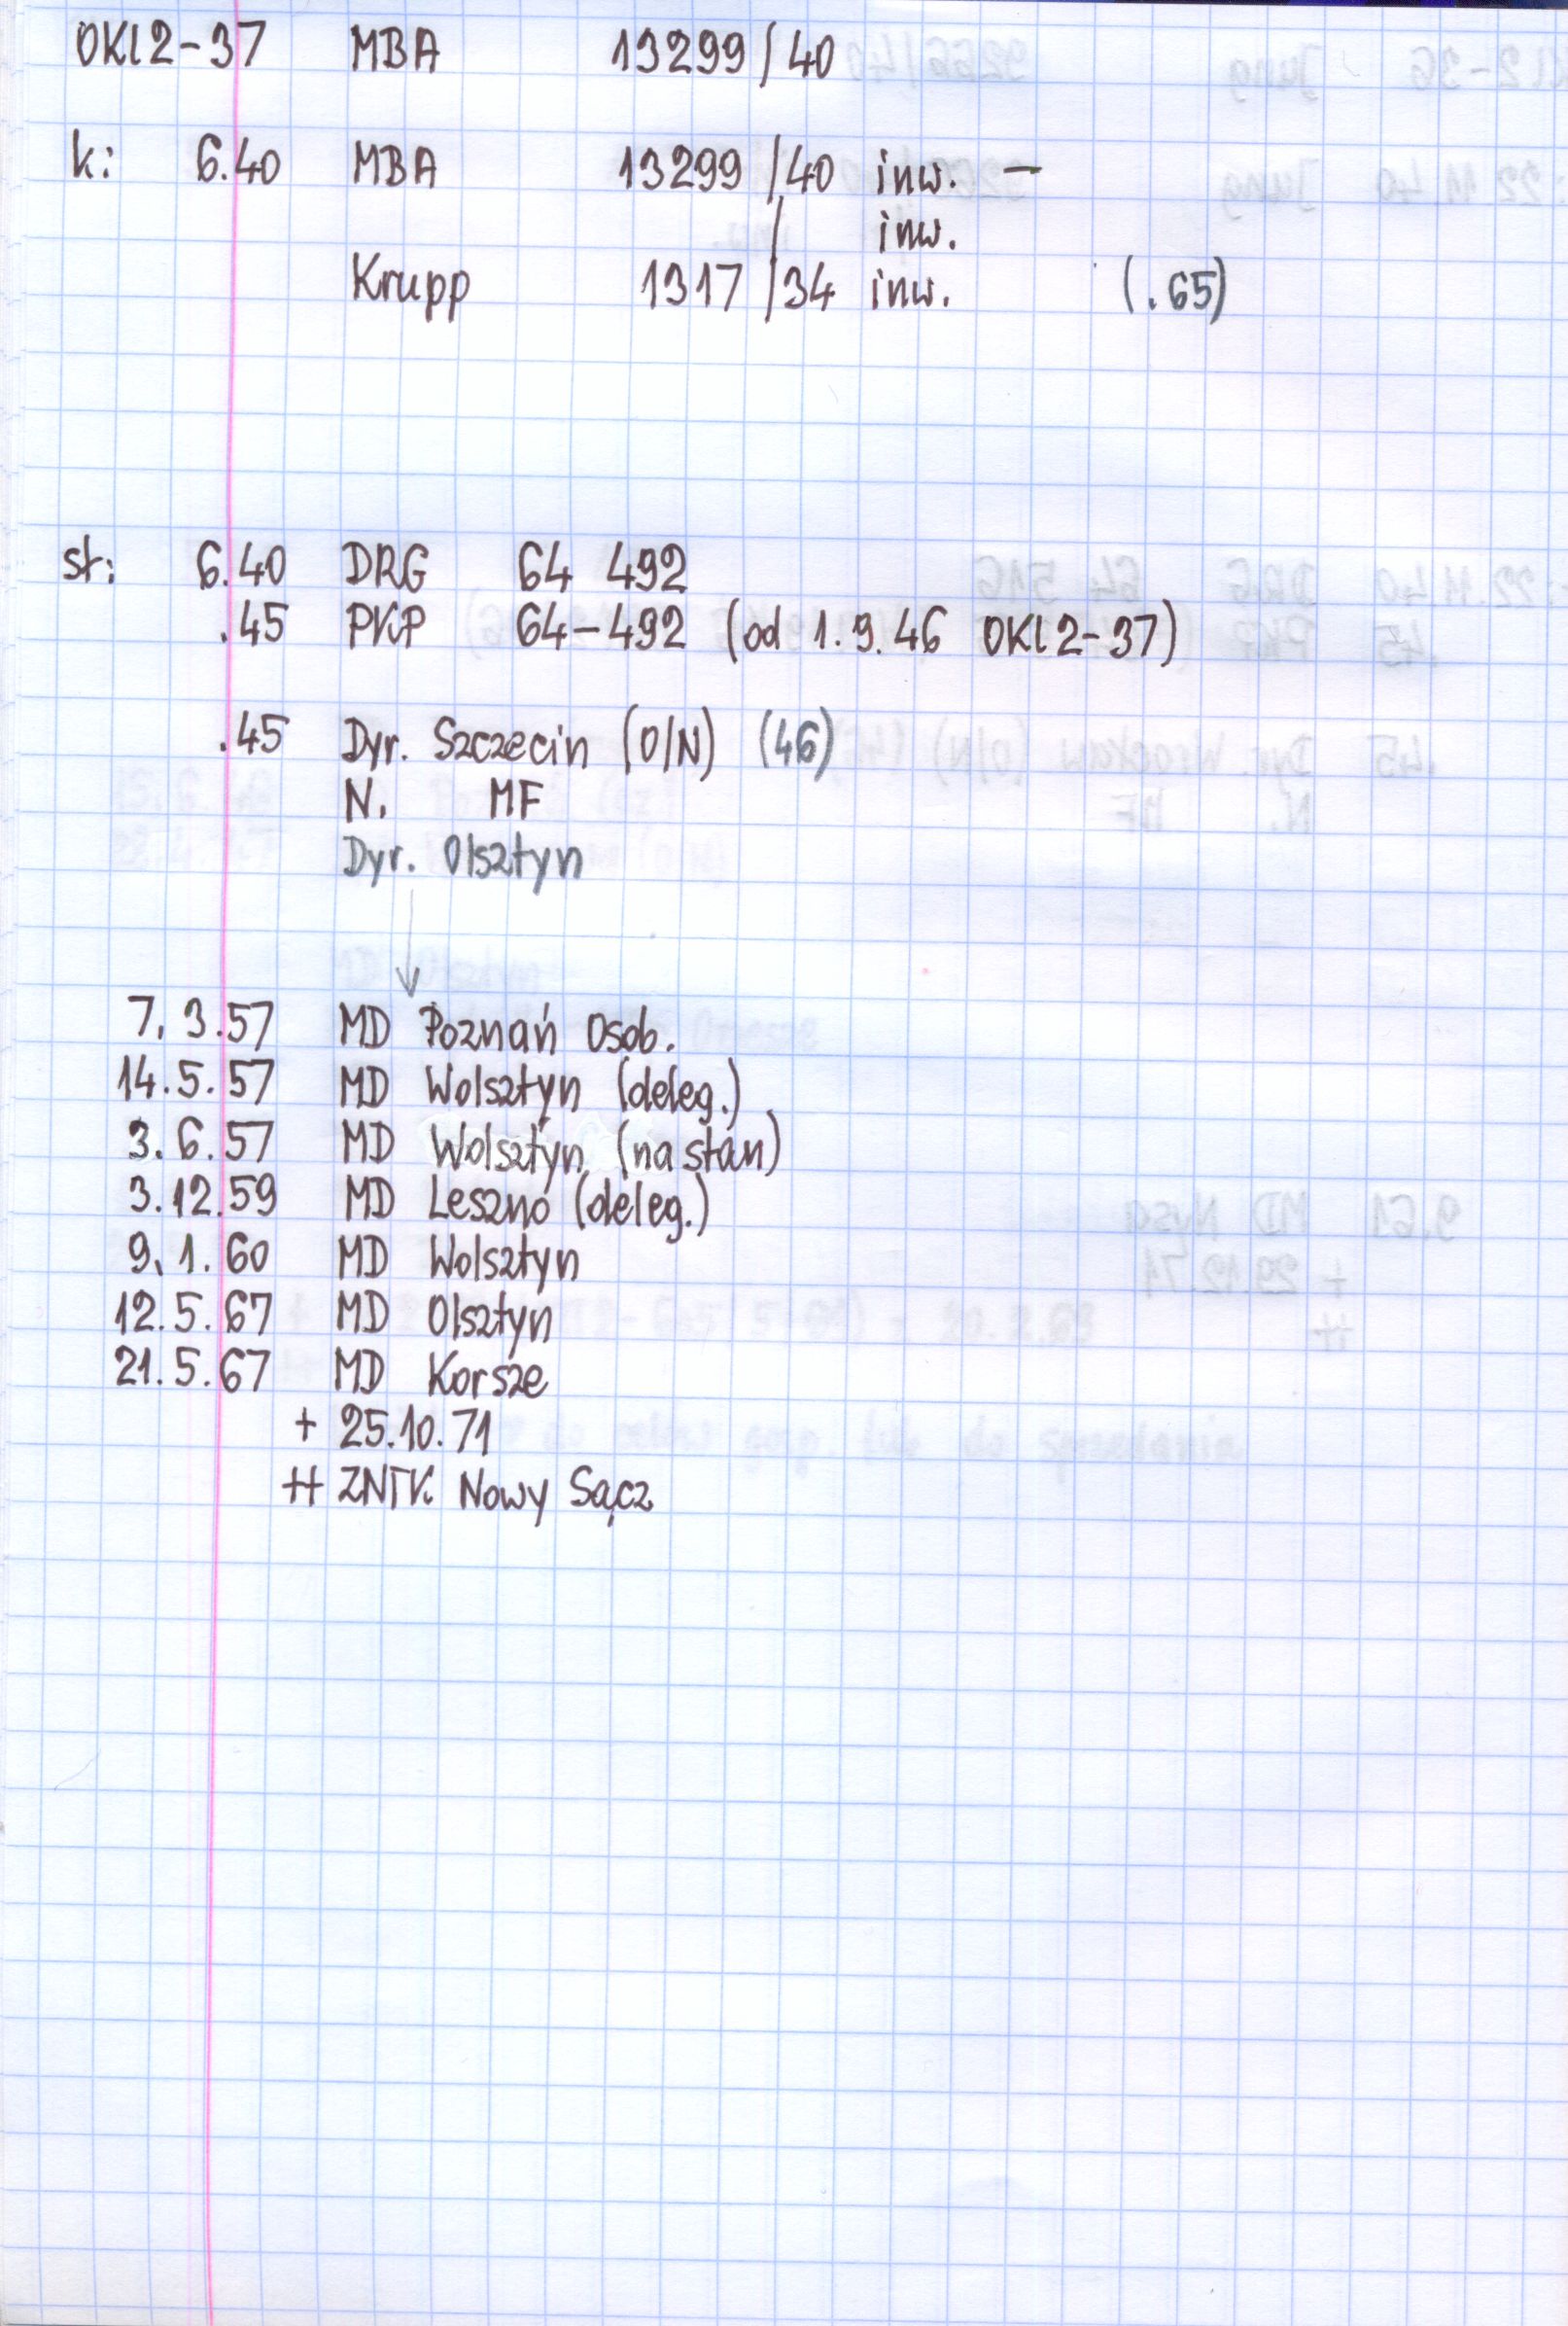 OKl2-37 MBA 13299/40
k: 6.40 MBA 13299/40 inw. —
/ inw.
Krupp 1317/34 inw. (.65)
st: 6.40 DRG 64 492
.45 PKP 64-492 (od 1.9.46 OKl2-37)
.45 Dyr. Szczecin (O/N) (46)
N. MF
Dyr. Olsztyn
7.3.57 MD Poznań Osob.
14.5.57 MD Wolsztyn (deleg.)
3.6.57 MD Wolsztyn (na stan)
3.12.59 MD Leszno (deleg.)
9.1.60 MD Wolsztyn
12.5.67 MD Olsztyn
21.5.67 MD Korsze
+ 25.10.71
++ ZNTK Nowy Sącz